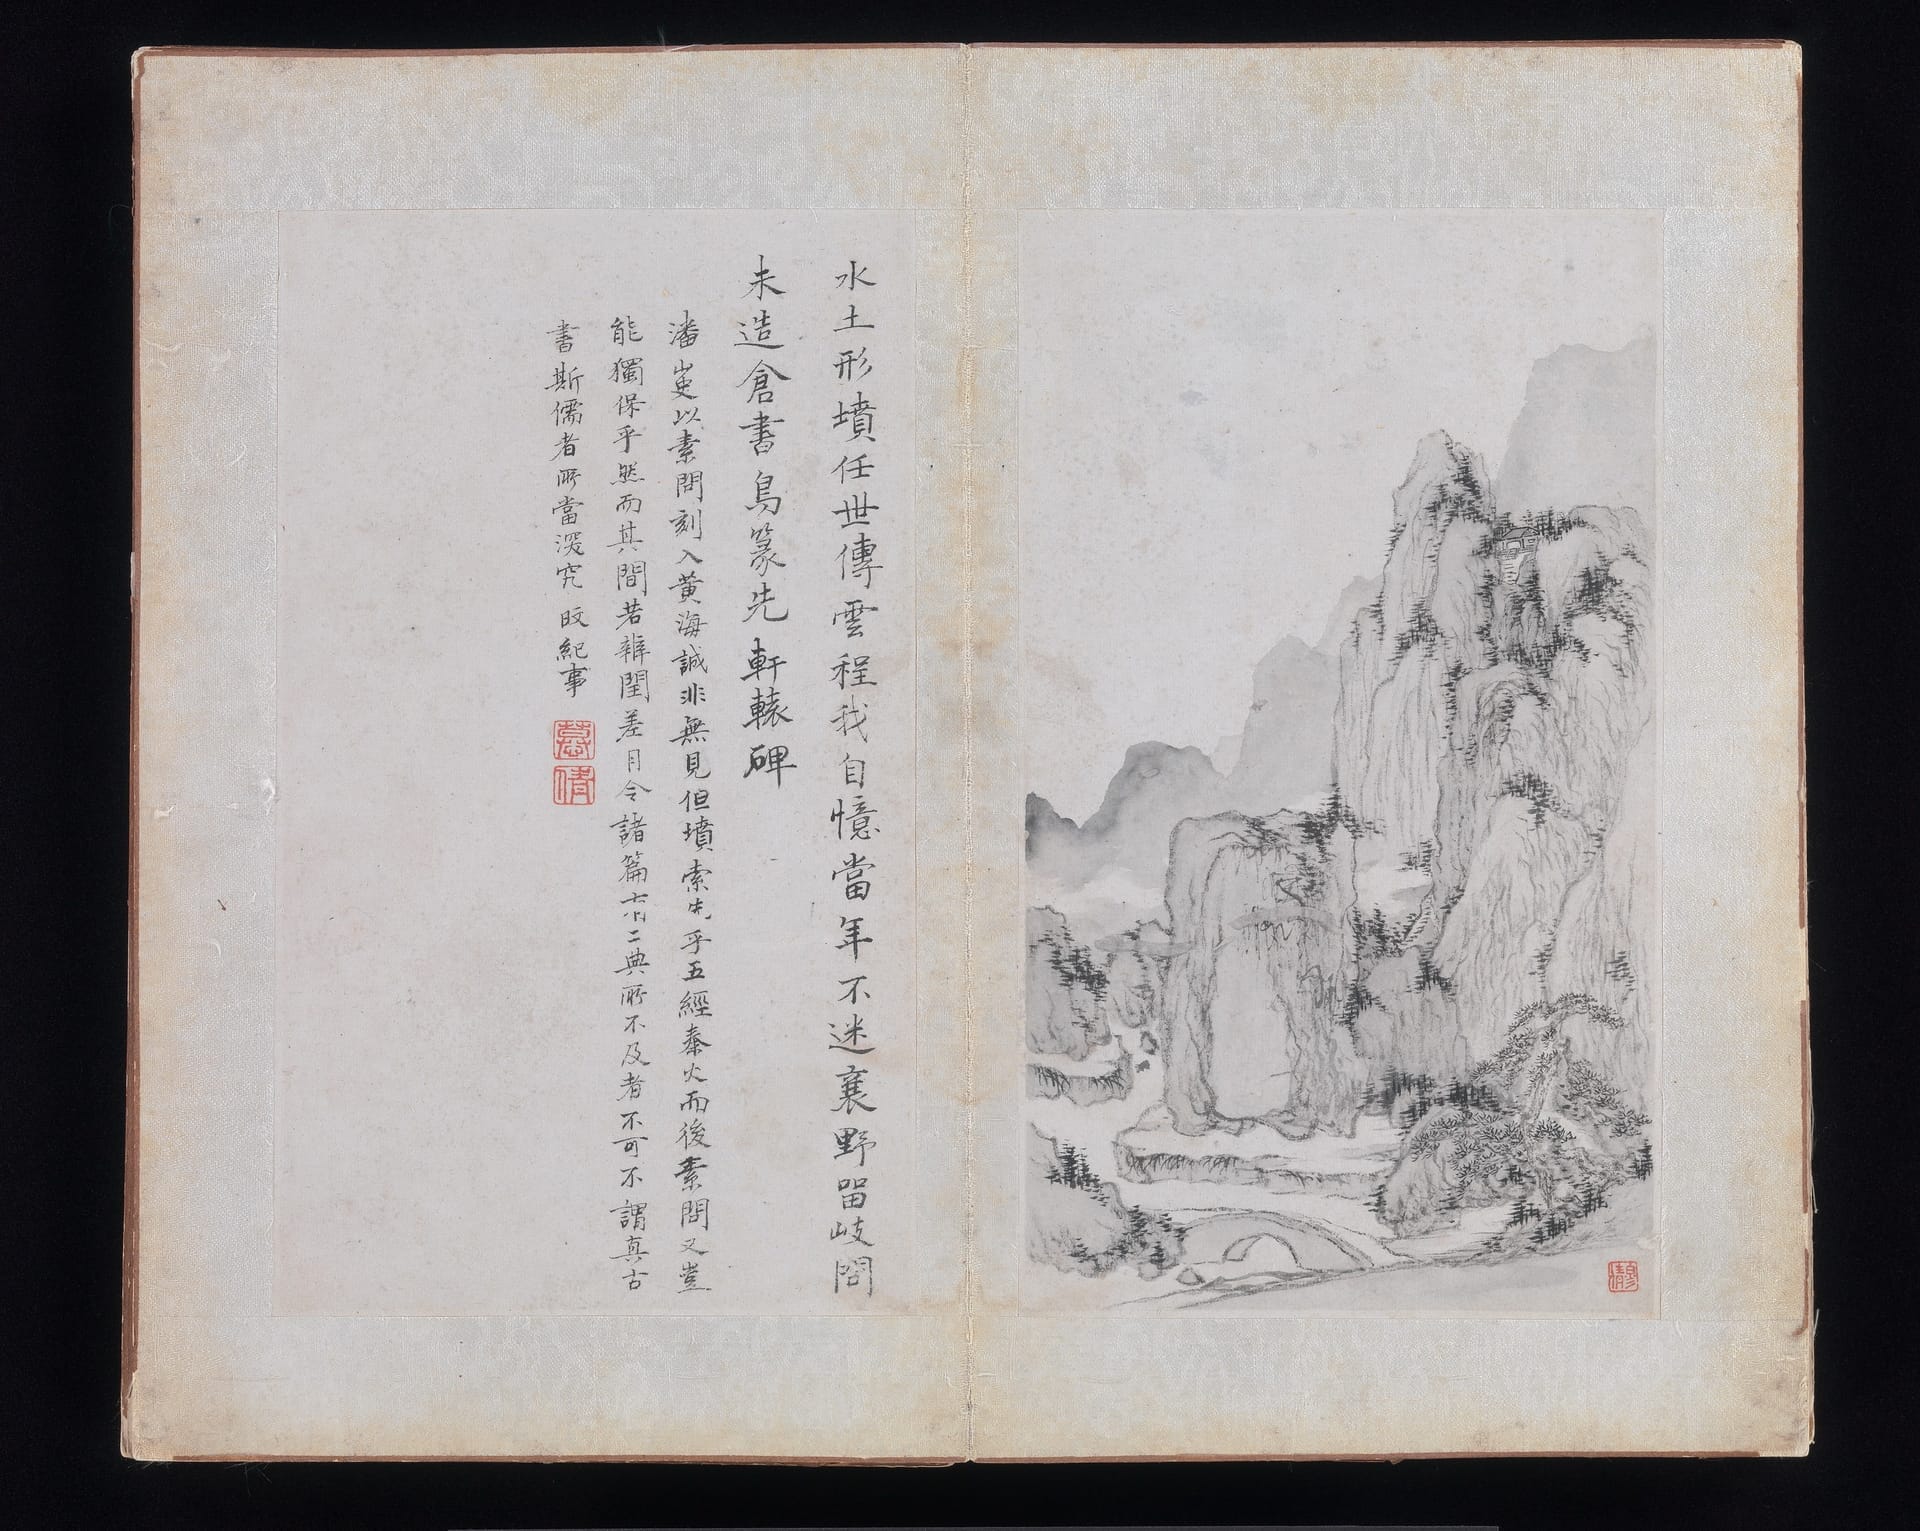 水土形墳任世傳雲程我自憶當年不迷襄野留岐問
未造倉書鳥篆先軒轅碑
潘叟以素問刻入黃海誠非無見但墳索先乎五經秦火而後素問又豈
能獨保乎然而其間若辨閏差月令諸篇有二典所不及者不可不謂真古
書斯儒者所當深究旼紀事
慕倩